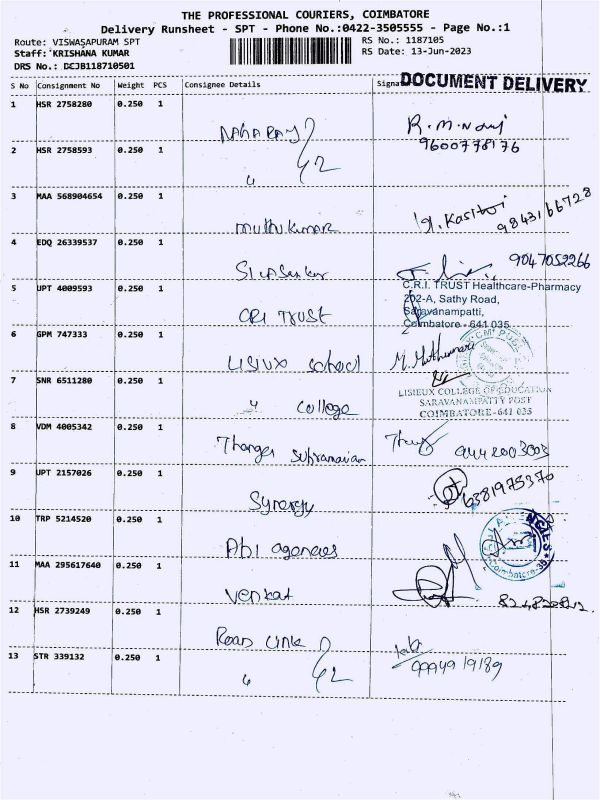 THE PROFESSIONAL COURIERS, COIMBATORE
Delivery Runsheet - SPT - Phone No.:0422-3505555 - Page No.:1
Route: VISWASAPURAM SPT
RS No.: 1187105
Staff: KRISHANA KUMAR
RS Date: 13-Jun-2023
DRS No.: DCJB118710501
DOCUMENT DELIVERY
S No Consignment No Weight PCS Consignee Details
1 HSR 2758280 0.250 1
R.M.
9600778176
2 HSR 2758593 0.250 1
42
"
3 MAA 568904654 0.250 1
muthukumar
9843166728
4 EDQ 26339537 0.250 1
9047052266
5 UPT 4009593 0.250 1
CRI TRUST
C.R.I. TRUST Healthcare-Pharmacy
202-A, Sathy Road,
Saravanampatti,
Coimbatore - 641 035
6 GPM 747333 0.250 1
LISIUX School
7 SNR 6511280 0.250 1
" College
LISIEUX COLLEGE OF EDUCATION
SARAVANAMPATTY POST
COIMBATORE-641 035
8 VDM 4005342 0.250 1
9442003003
9 UPT 2157026 0.250 1
Synergy
6381975370
10 TRP 5214520 0.250 1
Abi agencies
Coimbatore-35
11 MAA 295617640 0.250 1
Venkat
12 HSR 2739249 0.250 1
Road Link
13 STR 339132 0.250 1
" 42